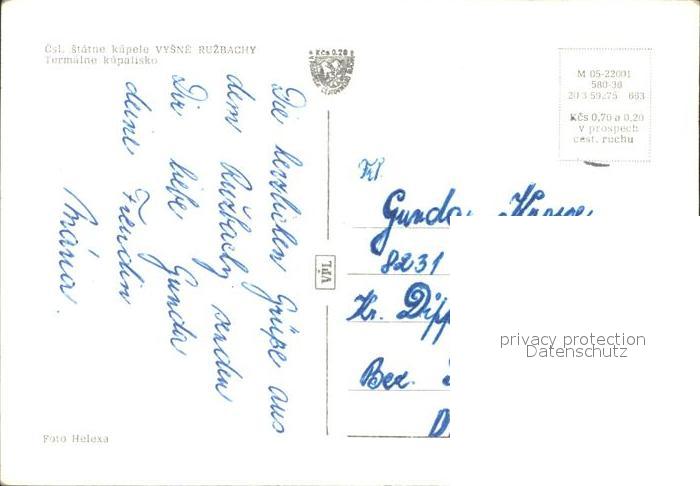 Čsl. štátne kúpele VYŠNÉ RUŽBACHY
Termálne kúpalisko
Kčs 0.20
M 05-22001
580-36
20 3 59275 663
Kčs 0,70 a 0,20
v prospech
cest. ruchu
Die herzlichen Grüße aus
dem Ružbachy senden
Dir liebe Gunda
deine Freudin
Mária.
VPL
Frl.
Gunda
8231
Kr. Dipp
Bez.
D
privacy protection
Datenschutz
Foto Helexa